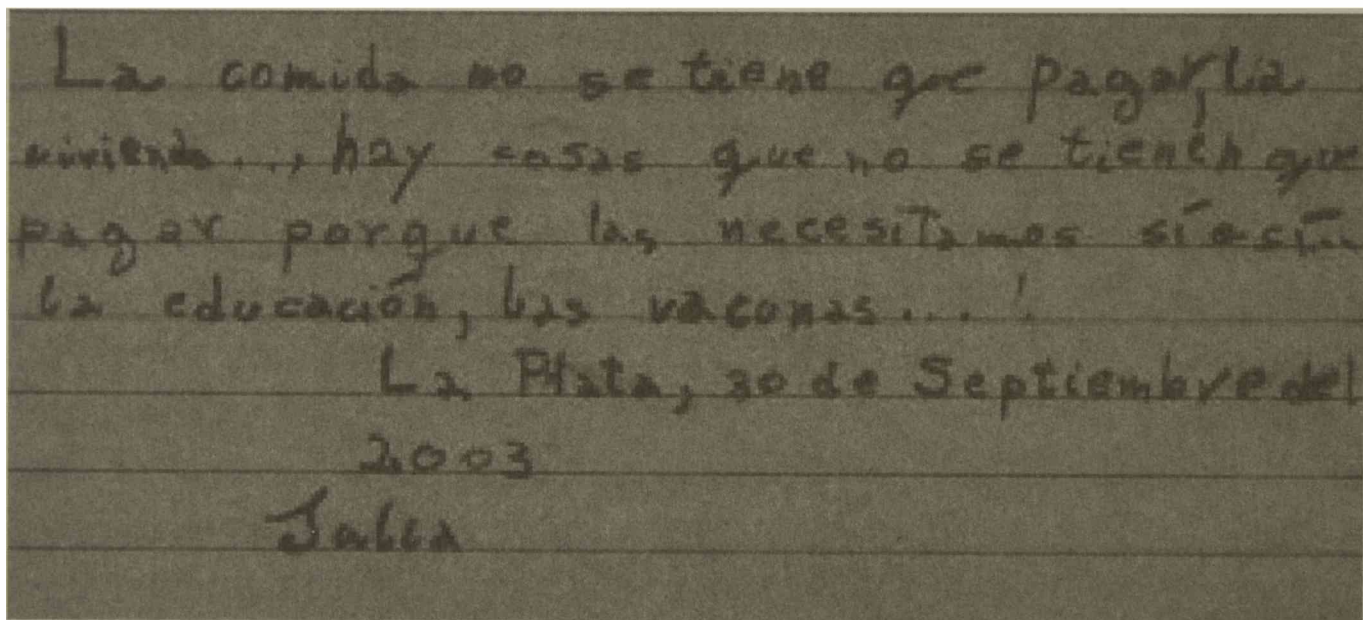 La comida no se tiene que pagar, la
vivienda..., hay cosas que no se tienen que
pagar porque las necesitamos sí o sí...
la educación, las vacunas...!
La Plata, 30 de Septiembre del
2003